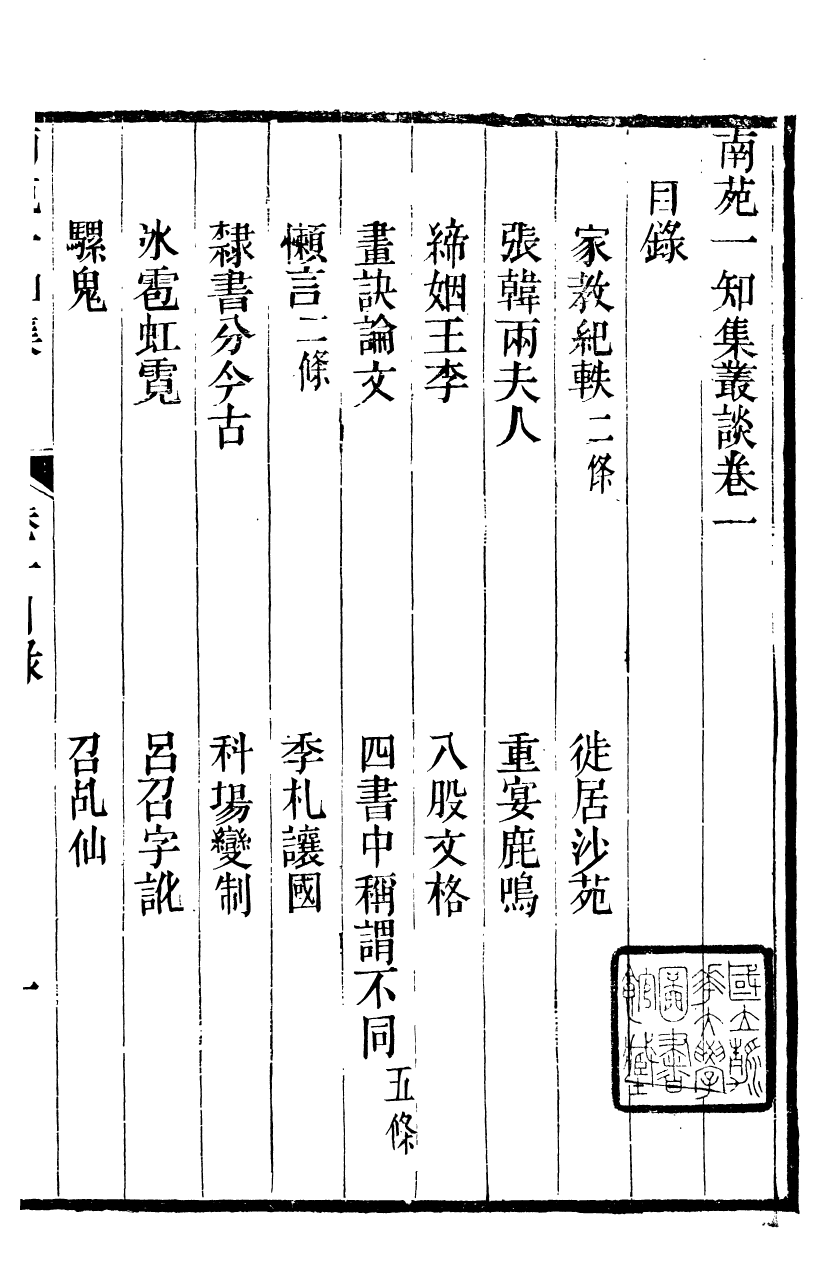 南苑一知集叢談卷一
目錄
家教紀軼二條 徙居沙苑
張韓兩夫人 重宴鹿鳴
締姻王李 八股文格
畫訣論文 四書中稱謂不同五條
懶言二條 季札讓國
隸書分今古 科場變制
氷雹虹霓 呂召字訛
騾鬼 召乩仙
南苑一知集 卷一目錄 一
國立清華大學圖書館藏